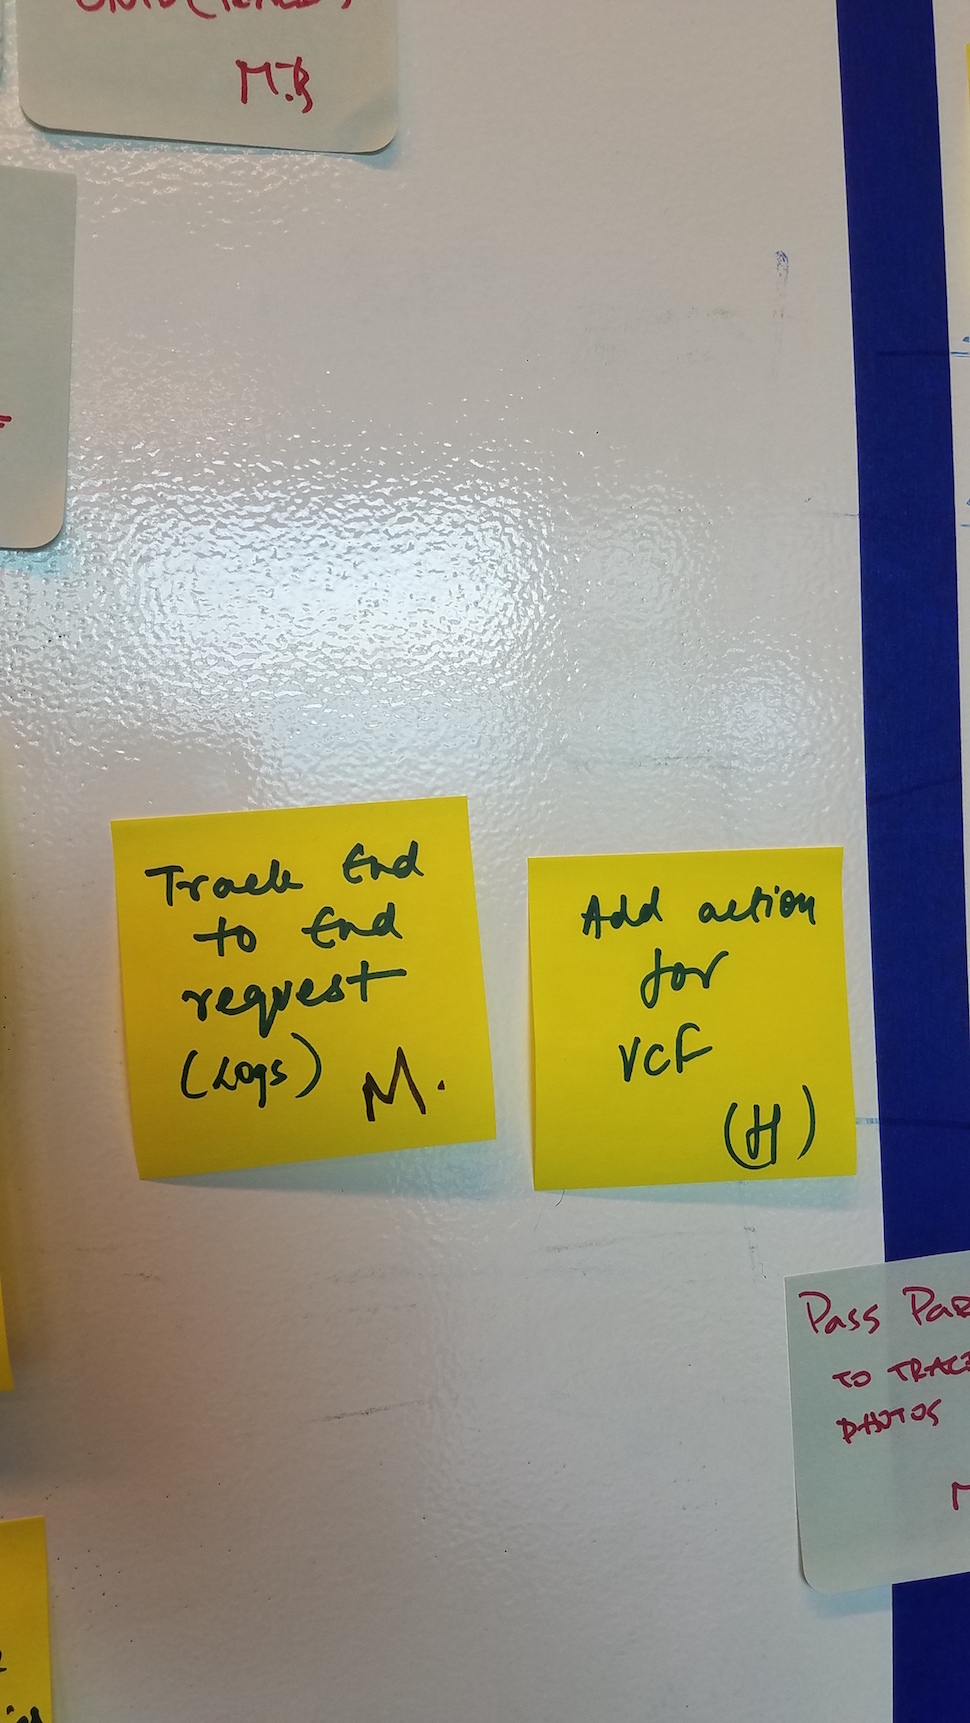 M.B
Track End
to End
request
(Logs) M.
Add action
for
VCF
(H)
Pass
TO
PHOTOS